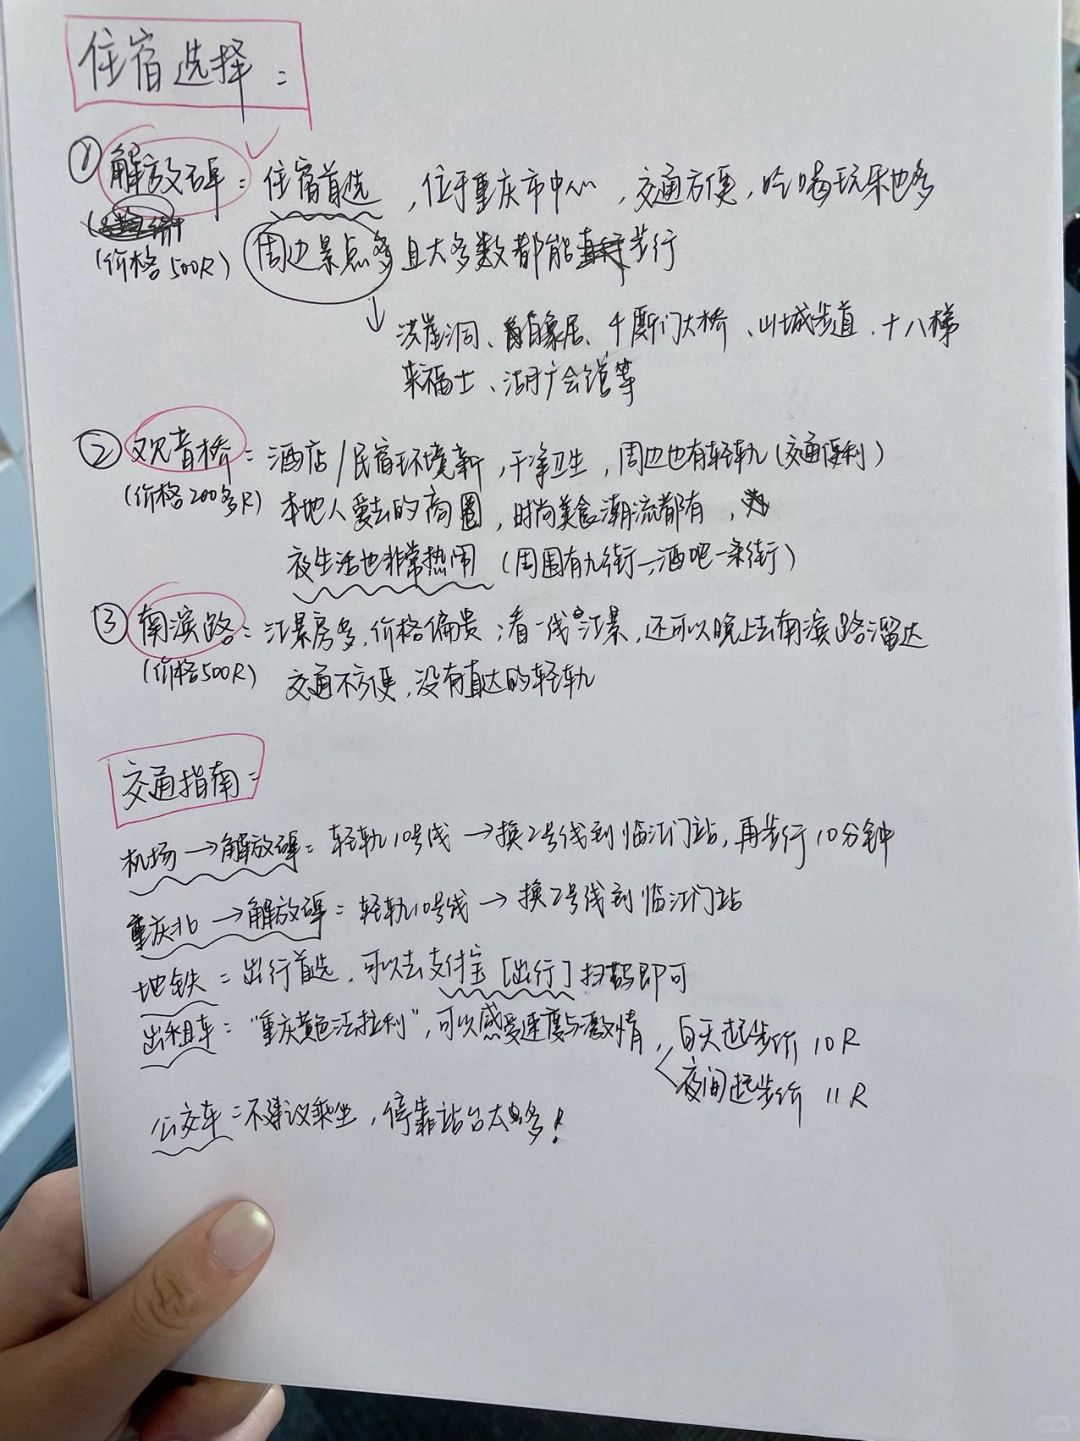 住宿选择：
① 解放碑：住宿首选，位于重庆市中心，交通方便，吃喝玩乐也多
(价格500R) 周边景点多且大多数都能步行
↓ 洪崖洞、白象居、千厮门大桥、山城步道、十八梯
来福士、湖广会馆等
② 观音桥：酒店/民宿环境新，干净卫生，周边也有轻轨(交通便利)
(价格200多R) 本地人爱去的商圈，时尚美食潮流都有，
夜生活也非常热闹（周围有九街—酒吧一条街）
③ 南滨路：江景房多，价格偏贵；看一线江景，还可以晚上去南滨路溜达
(价格500R) 交通不方便，没有直达的轻轨
交通指南：
机场→解放碑：轻轨10号线→换2号线到临江门站，再步行10分钟
重庆北→解放碑：轻轨10号线→换2号线到临江门站
地铁：出行首选，可以去支付宝[出行]扫码即可
出租车："重庆黄色法拉利"，可以感受速度与激情，白天起步价10R
夜间起步价11R
公交车：不建议乘坐，停靠站台太多！